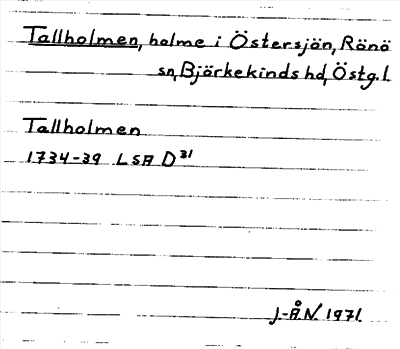 Tallholmen, holme i Östersjön, Rönö
sn, Björkekinds hd, Östg.l.
Tallholmen
1734-39 LSA D31
J-Å.N. 1971.